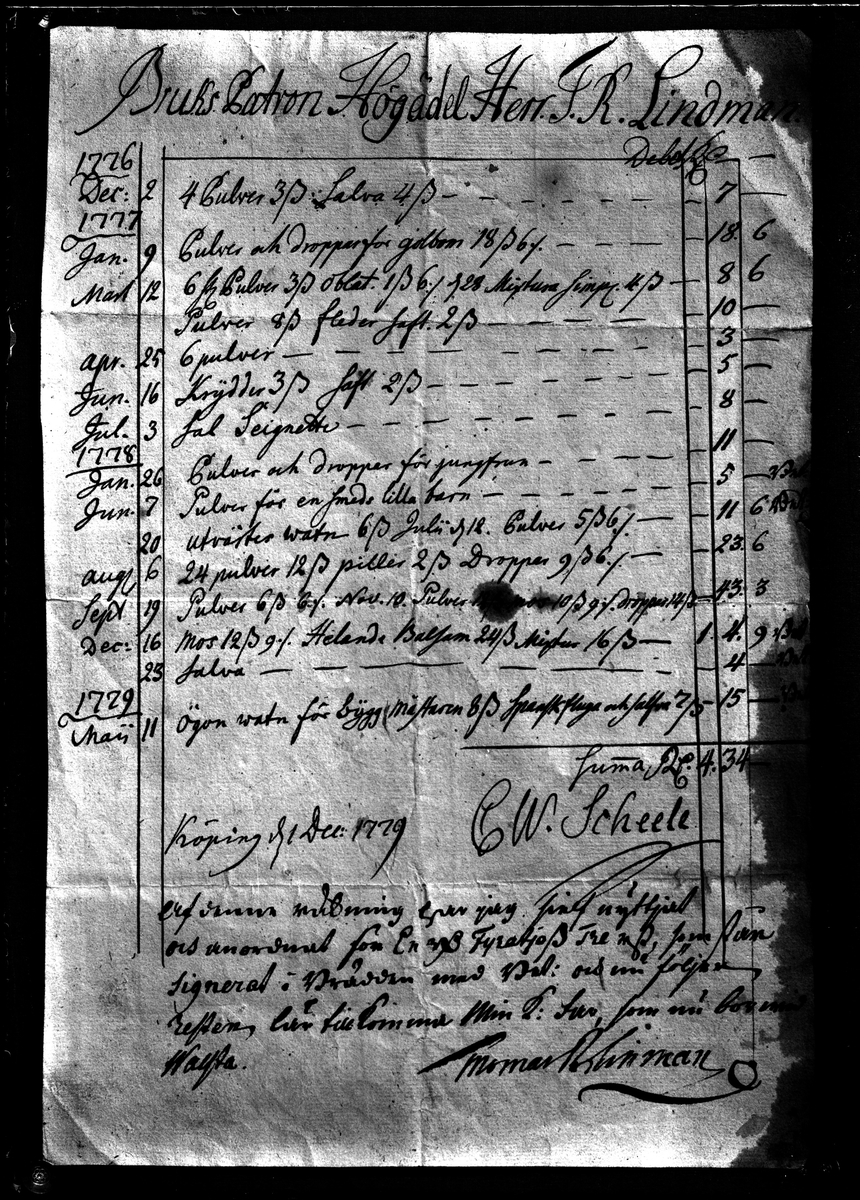 Bruks Patron Högädel Herr. T. R. Lindman.
Debet
1776
Dec: 2 4 Pulver 3ß: Salva 4ß — 7 —
1777
Jan. 9 Pulver och droppar for 18ß 6/. — 18. 6
Mart 12 6 Pulver 3ß oblat. 1ß 6./ 28 Mixtura Simpl. 4ß — 8 6
Pulver 8ß fleder saft. 2ß — 10 —
apr. 25 6 pulver — 3 —
Jun. 16 Krydder 3ß saft 2ß — 5 —
Jul. 3 Sal Seignette — 8 —
1778
Jan. 26 Pulver och droppar för jungfrun — 11 —
Jun. 7 Pulver för en smeds lilla barn — 5 —
20 utvärtes watn 6ß Julii d 12. Pulver 5ß 6/. — 11 6
aug 6 24 pulver 12ß piller 2ß Droppar 9ß 6./. — 23. 6
Sept 19 Pulver 6ß 6./. Nov. 10. Pulver 10ß 9./. droppar 14ß — 43. 3
Dec: 16 Mos 12ß 9./. Helande Balsam 24ß Mixtur 16ß — 1. 4. 9
23 Salva — 4 —
1779
Maii 11 Ögon watn för byggmästaren 8ß Spansk fluga och salfva 7ß 15 —
Summa Rd. 4. 34
Köping d 1 Dec: 1779 C W. Scheele
Af denne räkning har jag sielf nyttjat
och anordnat för En Tyratjoß Tre nß, som stån
signerat i Brädden med Bet: och nu följer
resten, lär tillkomma Min K: Far, som nu bor wid
Walsta. Thomas R Linman